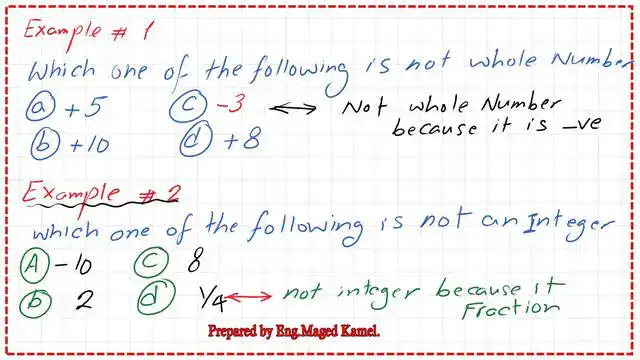 Example # 1
Which one of the following is not whole Number
(a) +5 (C) -3 ↔ Not whole Number
because it is -ve
(b) +10 (d) +8
Example # 2
which one of the following is not an Integer
(A) -10 (C) 8
(b) 2 (d) 1/4 ↔ not integer because it
Fraction
Prepared by Eng.Maged Kamel.